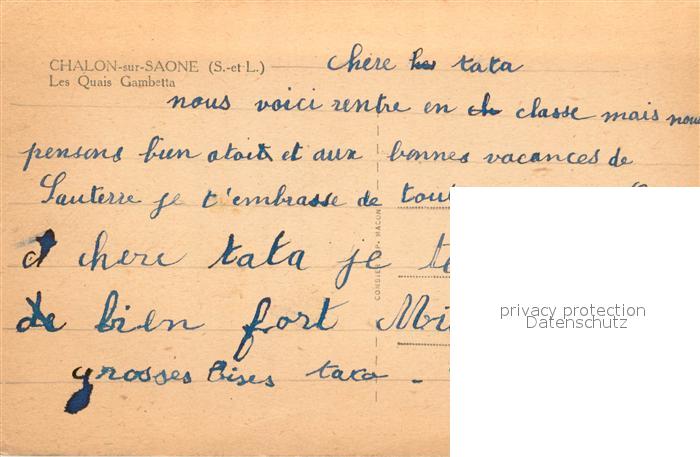 CHALON-sur-SAONE (S.-et L.)
Les Quais Gambetta
chere tata
nous voici rentre en classe mais nous
pensons bien atoit et aux bonnes vacances de
Sauterre je t'embrasse de tout
chere tata je
de bien fort
grosses Bises tata -
COMBIER IMP. MACON
privacy protection
Datenschutz